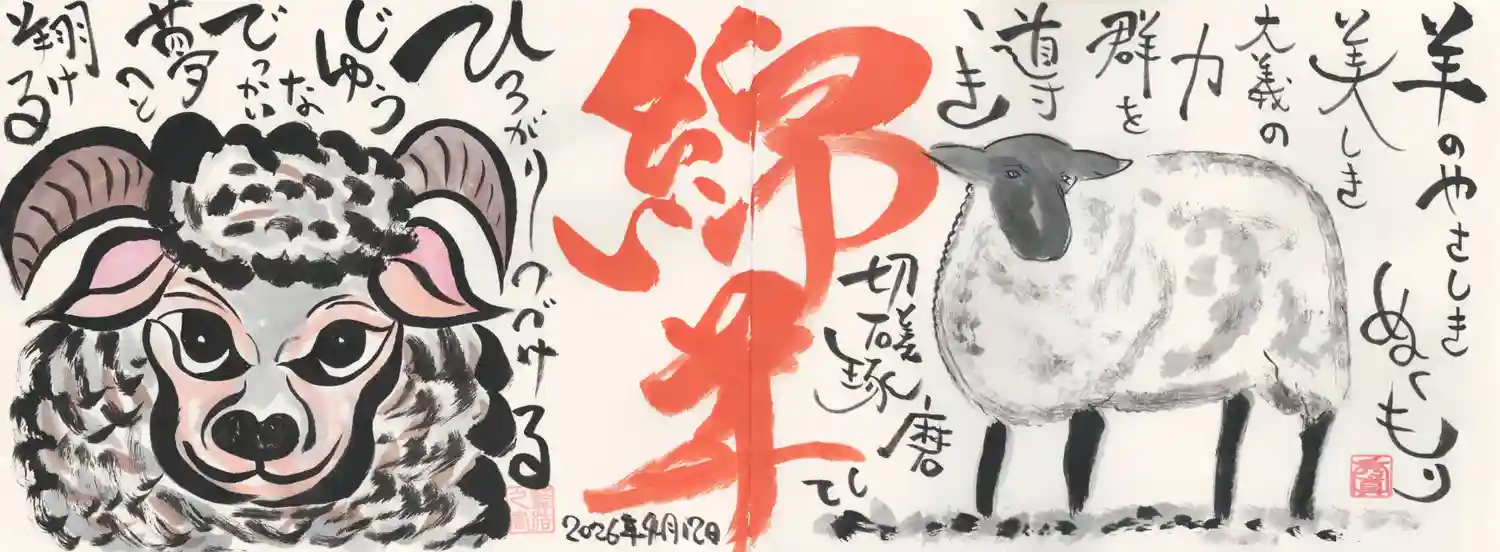 羊のやさしき
ぬくもり
美しき
大義の
力
群を
導
いき
切磋琢磨
して
綿羊
ひろがりつづける
じゆう
な
でっかい
夢へと
翔ける
2026年4月12日